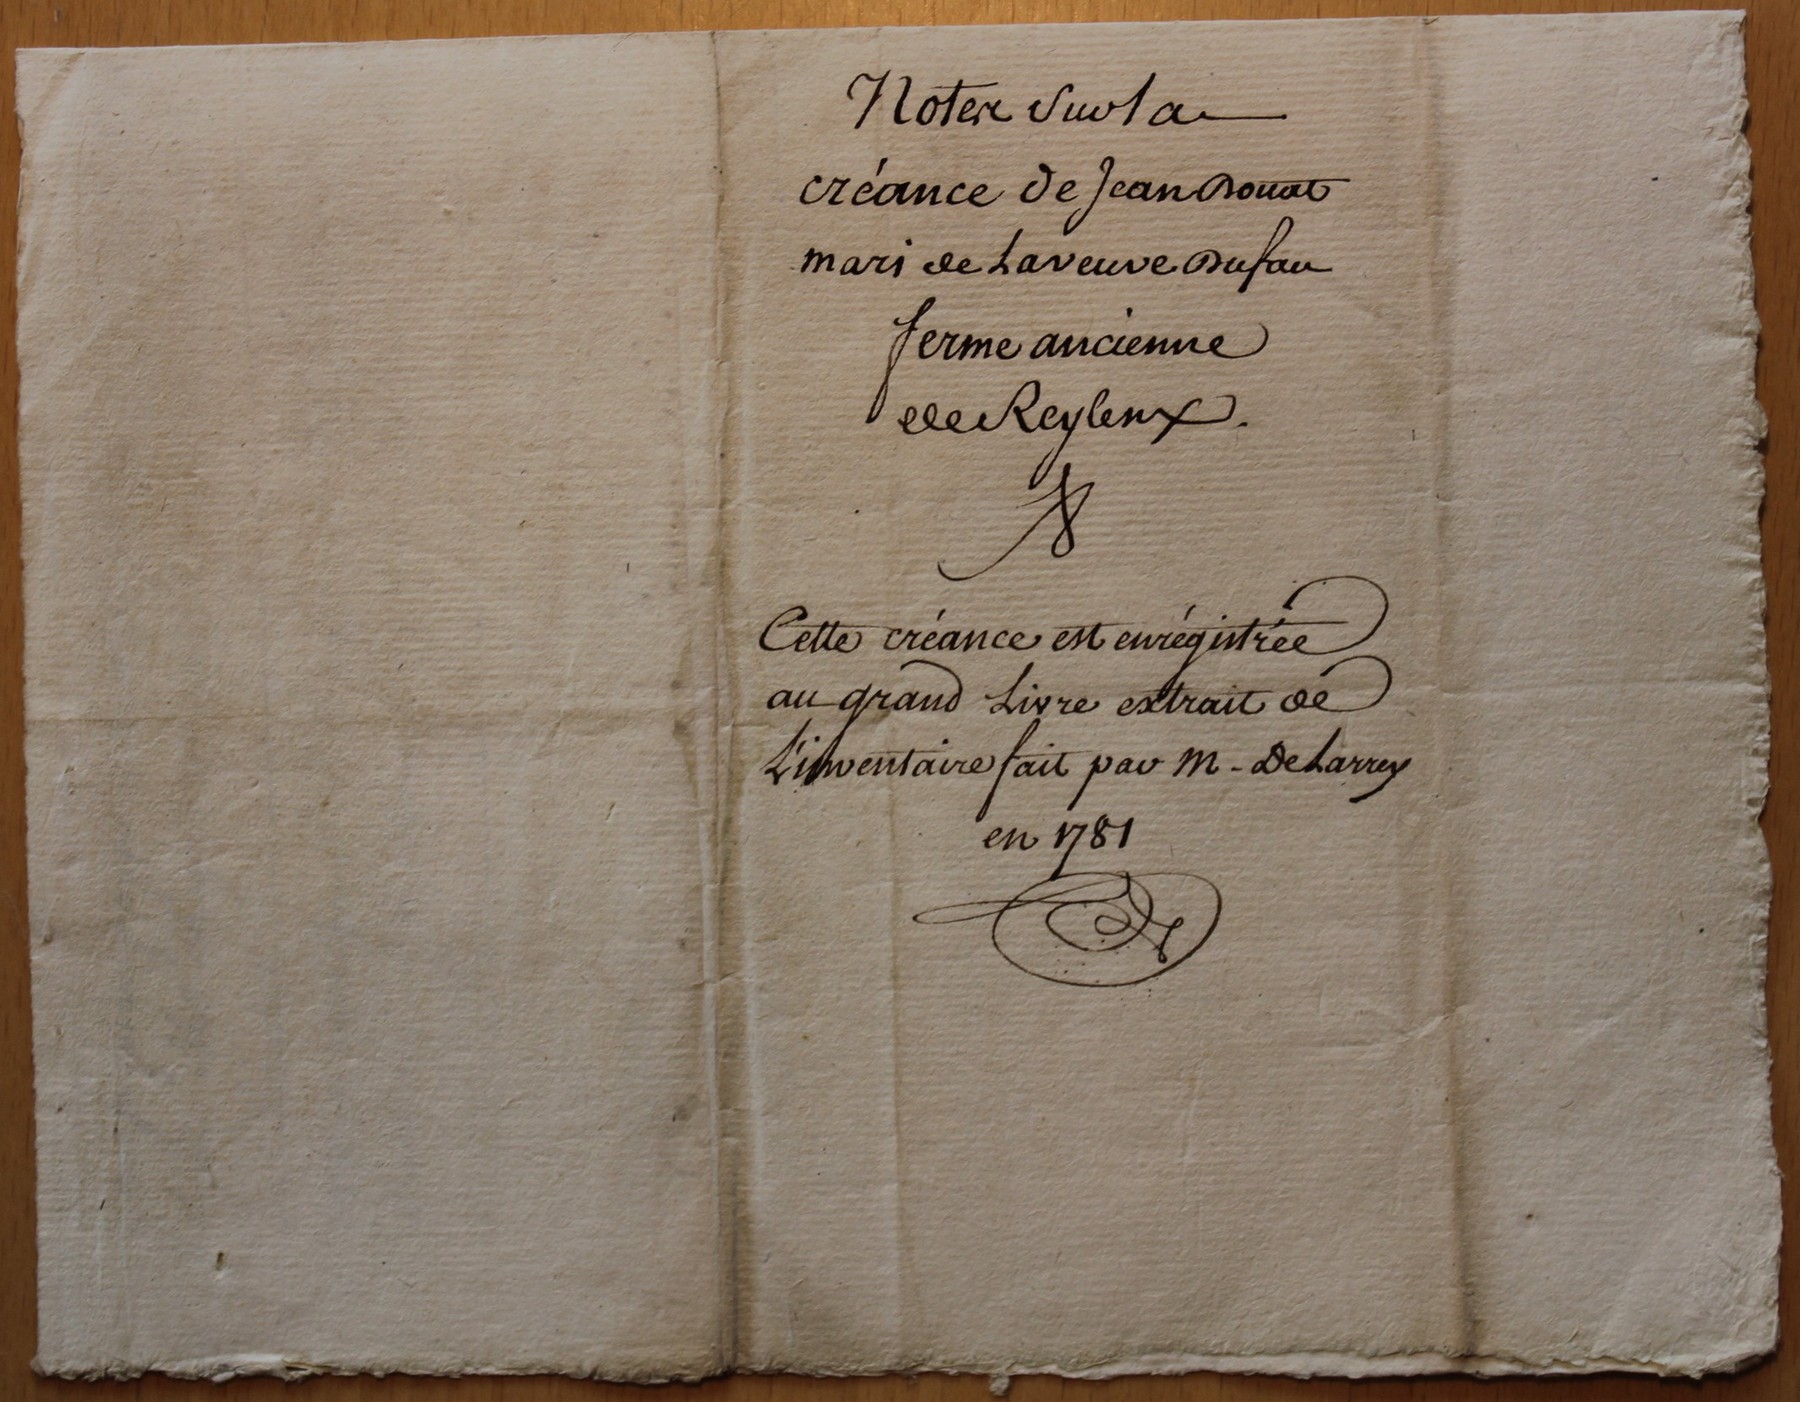 Notes sur la
créance de Jean Douat
mari de La veuve Dufau
ferme ancienne
de Reyleux.
Cette créance est enrégistrée
au grand Livre extrait de
L'inventaire fait par M - De Larrey
en 1781